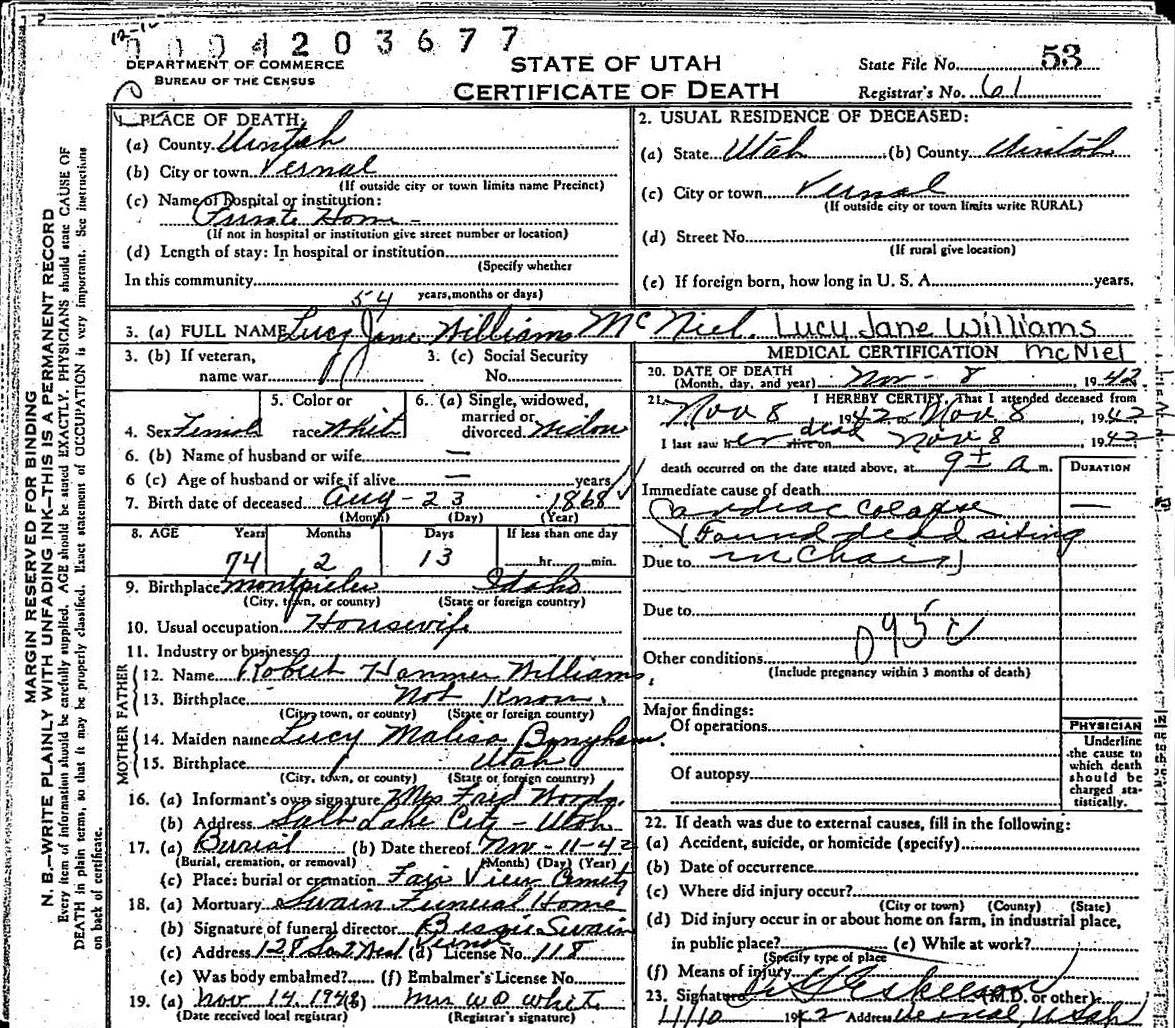 0004203677
DEPARTMENT OF COMMERCE
BUREAU OF THE CENSUS
STATE OF UTAH
CERTIFICATE OF DEATH
State File No. 53
Registrar's No. 61
MARGIN RESERVED FOR BINDING
N. B.—WRITE PLAINLY WITH UNFADING INK—THIS IS A PERMANENT RECORD
Every item of information should be carefully supplied. AGE should be stated EXACTLY. PHYSICIANS should state CAUSE OF
DEATH in plain terms, so that it may be properly classified. Exact statement of OCCUPATION is very important. See instructions
on back of certificate.
1. PLACE OF DEATH:
(a) County Uintah
(b) City or town Vernal
(If outside city or town limits name Precinct)
(c) Name of hospital or institution:
Private Home
(If not in hospital or institution give street number or location)
(d) Length of stay: In hospital or institution
(Specify whether
In this community 54
years, months or days)
2. USUAL RESIDENCE OF DECEASED:
(a) State Utah (b) County Uintah
(c) City or town Vernal
(If outside city or town limits write RURAL)
(d) Street No.
(If rural give location)
(e) If foreign born, how long in U. S. A. years.
3. (a) FULL NAME Lucy Jane Williams McNiel. Lucy Jane Williams
McNiel
3. (b) If veteran,
name war
3. (c) Social Security
No.
4. Sex Female
5. Color or
race White
6. (a) Single, widowed,
married or
divorced. Widow
6. (b) Name of husband or wife —
6 (c) Age of husband or wife if alive — years
7. Birth date of deceased Aug - 23 1868
(Month) (Day) (Year)
8. AGE Years Months Days If less than one day
74 2 13 hr. min.
9. Birthplace Montpieler Idaho
(City, town, or county) (State or foreign country)
10. Usual occupation Housewife
11. Industry or business
FATHER
12. Name Robert Hammer Williams
13. Birthplace Not Know.
(City, town, or county) (State or foreign country)
MOTHER
14. Maiden name Lucy Malisa
15. Birthplace Utah
(City, town, or county) (State or foreign country)
16. (a) Informant's own signature Mrs Fred Woods
(b) Address Salt Lake City - Utah
17. (a) Burial (b) Date thereof Nov - 11-42
(Burial, cremation, or removal) (Month) (Day) (Year)
(c) Place: burial or cremation Fair View Cemety
18. (a) Mortuary Swain Funeral Home
(b) Signature of funeral director Swain
Vernal
(c) Address 128 So 2 West (d) License No. 118
(e) Was body embalmed? (f) Embalmer's License No.
19. (a) Nov 14 1942 (b) Mrs W D White
(Date received local registrar) (Registrar's signature)
MEDICAL CERTIFICATION
20. DATE OF DEATH
(Month, day, and year) Nov - 8, 1942
21. I HEREBY CERTIFY, That I attended deceased from
Nov 8 1942 to Nov 8, 1942
I last saw her dead alive on Nov 8 1942
death occurred on the date stated above, at 9± a m.
DURATION
Immediate cause of death
Cardiac Colapse —
(Found dead siting
Due to in Chair)
Due to
095c
Other conditions
(Include pregnancy within 3 months of death)
Major findings:
Of operations
Of autopsy
PHYSICIAN
Underline
the cause to
which death
should be
charged sta-
tistically.
22. If death was due to external causes, fill in the following:
(a) Accident, suicide, or homicide (specify)
(b) Date of occurrence
(c) Where did injury occur?
(City or town) (County) (State)
(d) Did injury occur in or about home on farm, in industrial place,
in public place? (e) While at work?
(Specify type of place
(f) Means of injury
23. Signature Eskelson (M.D. or other)
11/10 1942 Address Vernal, Utah